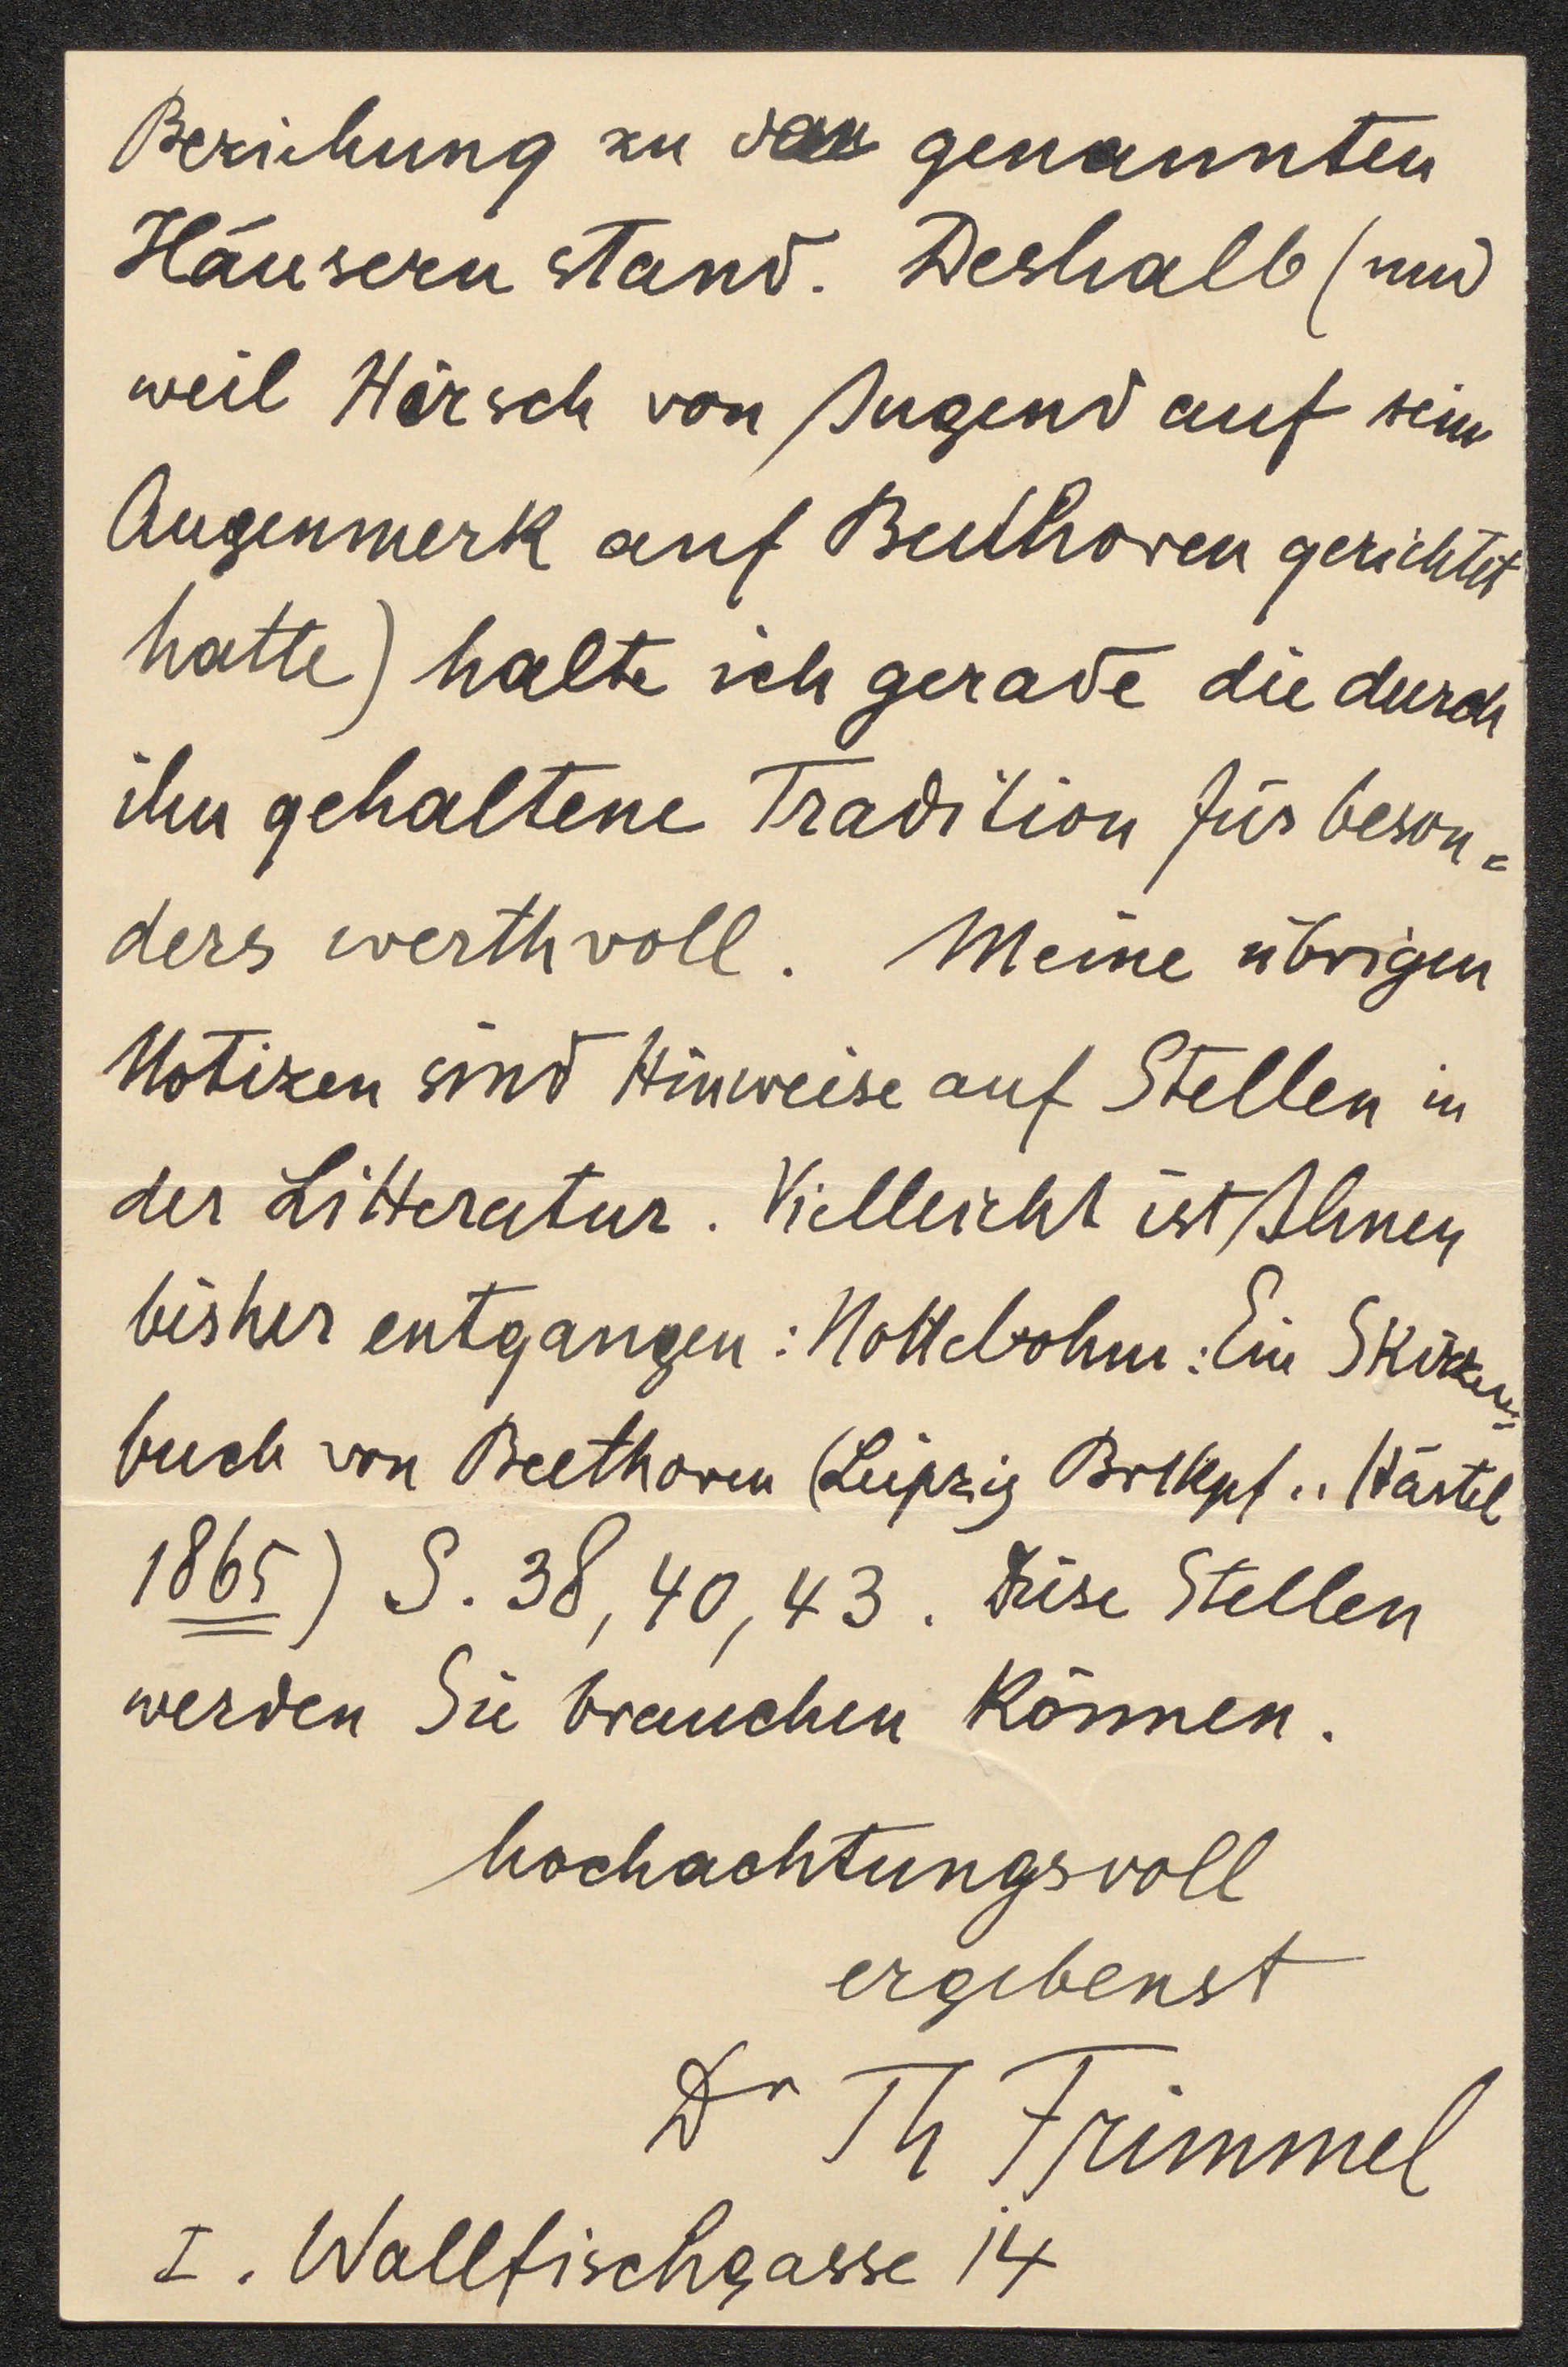 Beziehung zu den genannten
Häusern stand. Deshalb (und
weil Hirsch von Jugend auf sein
Augenmerk auf Beethoven gerichtet
hatte) halte ich gerade die durch
ihn gehaltene Tradition für beson=
ders werthvoll. Meine übrigen
Notizen sind Hinweise auf Stellen in
der Litteratur. Vielleicht ist Ihnen
bisher entgangen: Nottebohm: Ein Skizzen=
buch von Beethoven (Leipzig Brtkpf .. Härtel
1865) S. 38, 40, 43. Diese Stellen
werden Sie brauchen können.
hochachtungsvoll
ergebenst
Dr Th Frimmel
I. Wallfischgasse 14